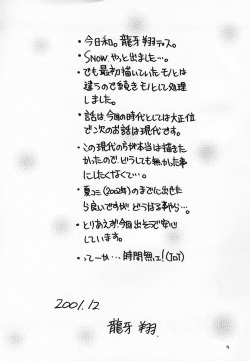 ・今日和。龍牙翔デス。
・SNOW. やっと出ました…。
・でも最初描いていたモノとは
違うので手直きモノとして処理
しました。
・話は、今回の時代としては大正位
で次のお話は現代です。
・この現代の方が本当は描きた
かったので、どうしても無かった事
にしたくなくて…。
・夏コミ(2002年)のまでに出せた
ら良いですが、どうなる事やら…。
・とりあえず今回出せて安心
しています。
・ってーか…時間無ェ!(ToT)
2001.12
龍牙 翔
4